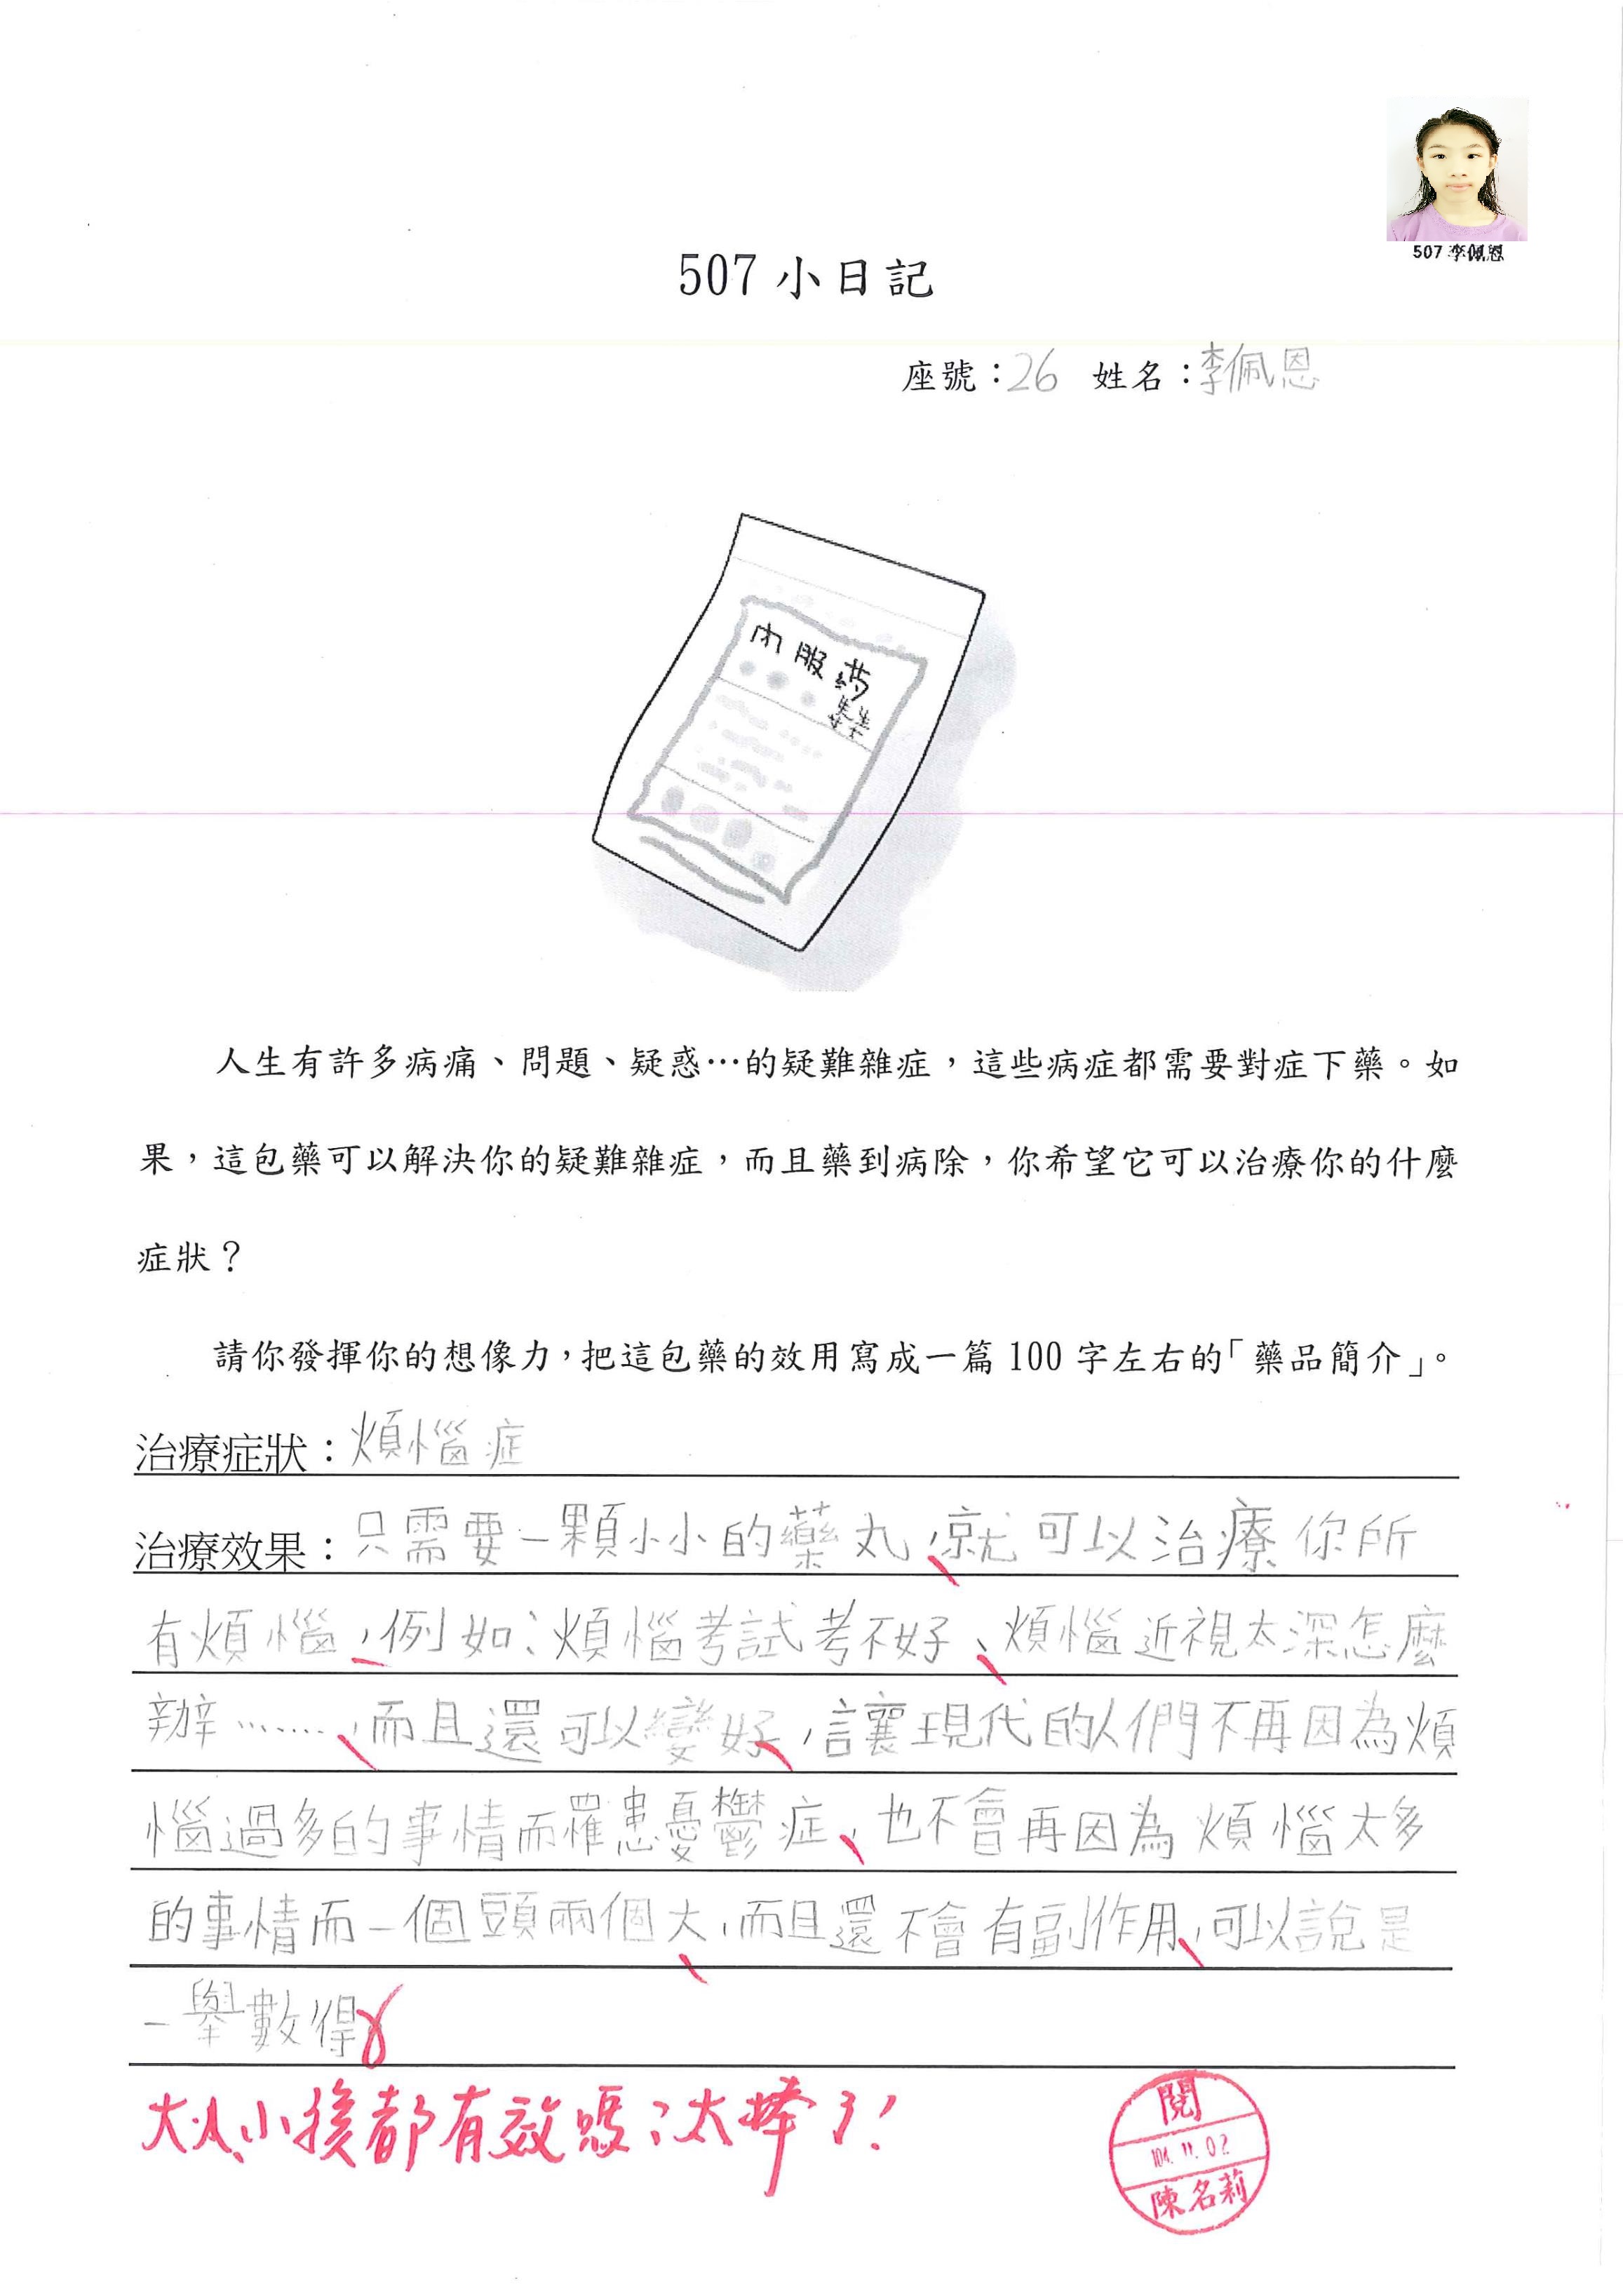 507 李佩恩
507 小日記
座號：26 姓名：李佩恩
內服藥
人生有許多病痛、問題、疑惑…的疑難雜症，這些病症都需要對症下藥。如
果，這包藥可以解決你的疑難雜症，而且藥到病除，你希望它可以治療你的什麼
症狀？
請你發揮你的想像力，把這包藥的效用寫成一篇 100 字左右的「藥品簡介」。
治療症狀：煩惱症
治療效果：只需要一顆小小的藥丸，就可以治療你所
有煩惱，例如：煩惱考試考不好、煩惱近視太深怎麼
辦……，而且還可以變好，讓現代的人們不再因為煩
惱過多的事情而罹患憂鬱症，也不會再因為煩惱太多
的事情而一個頭兩個大，而且還不會有副作用，可以說是
一舉數得。
大人、小孩都有效嗎？太棒了！
閱
104.11.02
陳名莉